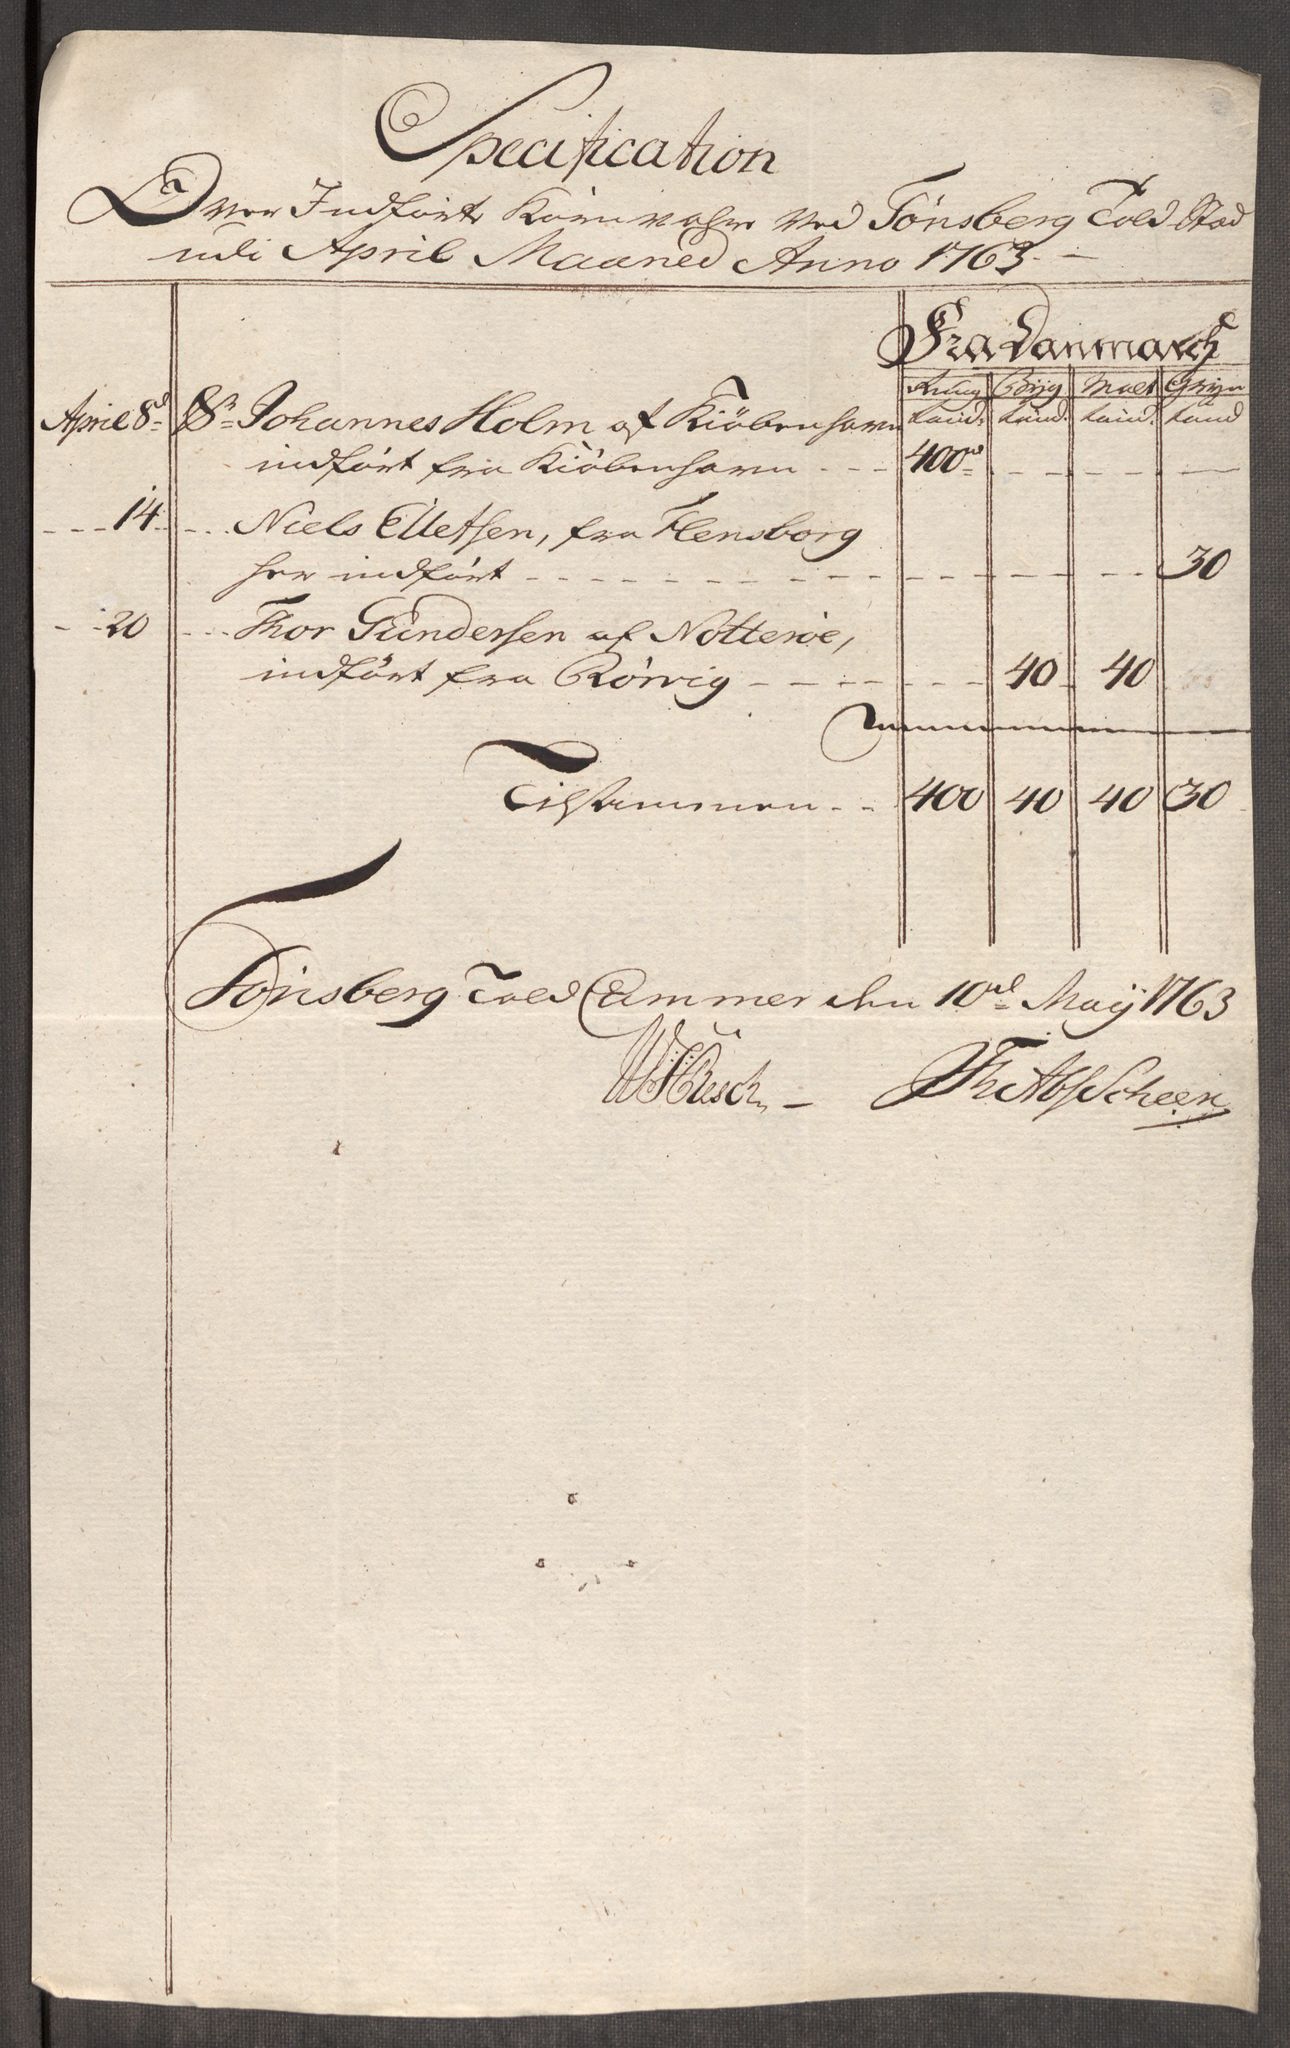 Specification
Over Indførte Kornvahre ved Tønsberg Told Stad
udi April Maaned Anno 1763 -
Fra Danmarch
Rug Byg Malt Gryn
tønd. tønd. tønd. tønd
April 8d Sr Johannes Holm af Kiøbenhavn
indført fra Kiøbenhavn - - - 400
- - - 14 - - - Niels Elletsen, fra Flensborg
her indført - - - - - - - - - - - 30
- - 20 - - - Thor Gundersen af Notterøe,
indført fra Rørvig - - - - - - - 40 40
Tilsammen - - 400 40 40 30
Tønsberg Told Cammer den 10de Maÿ 1763